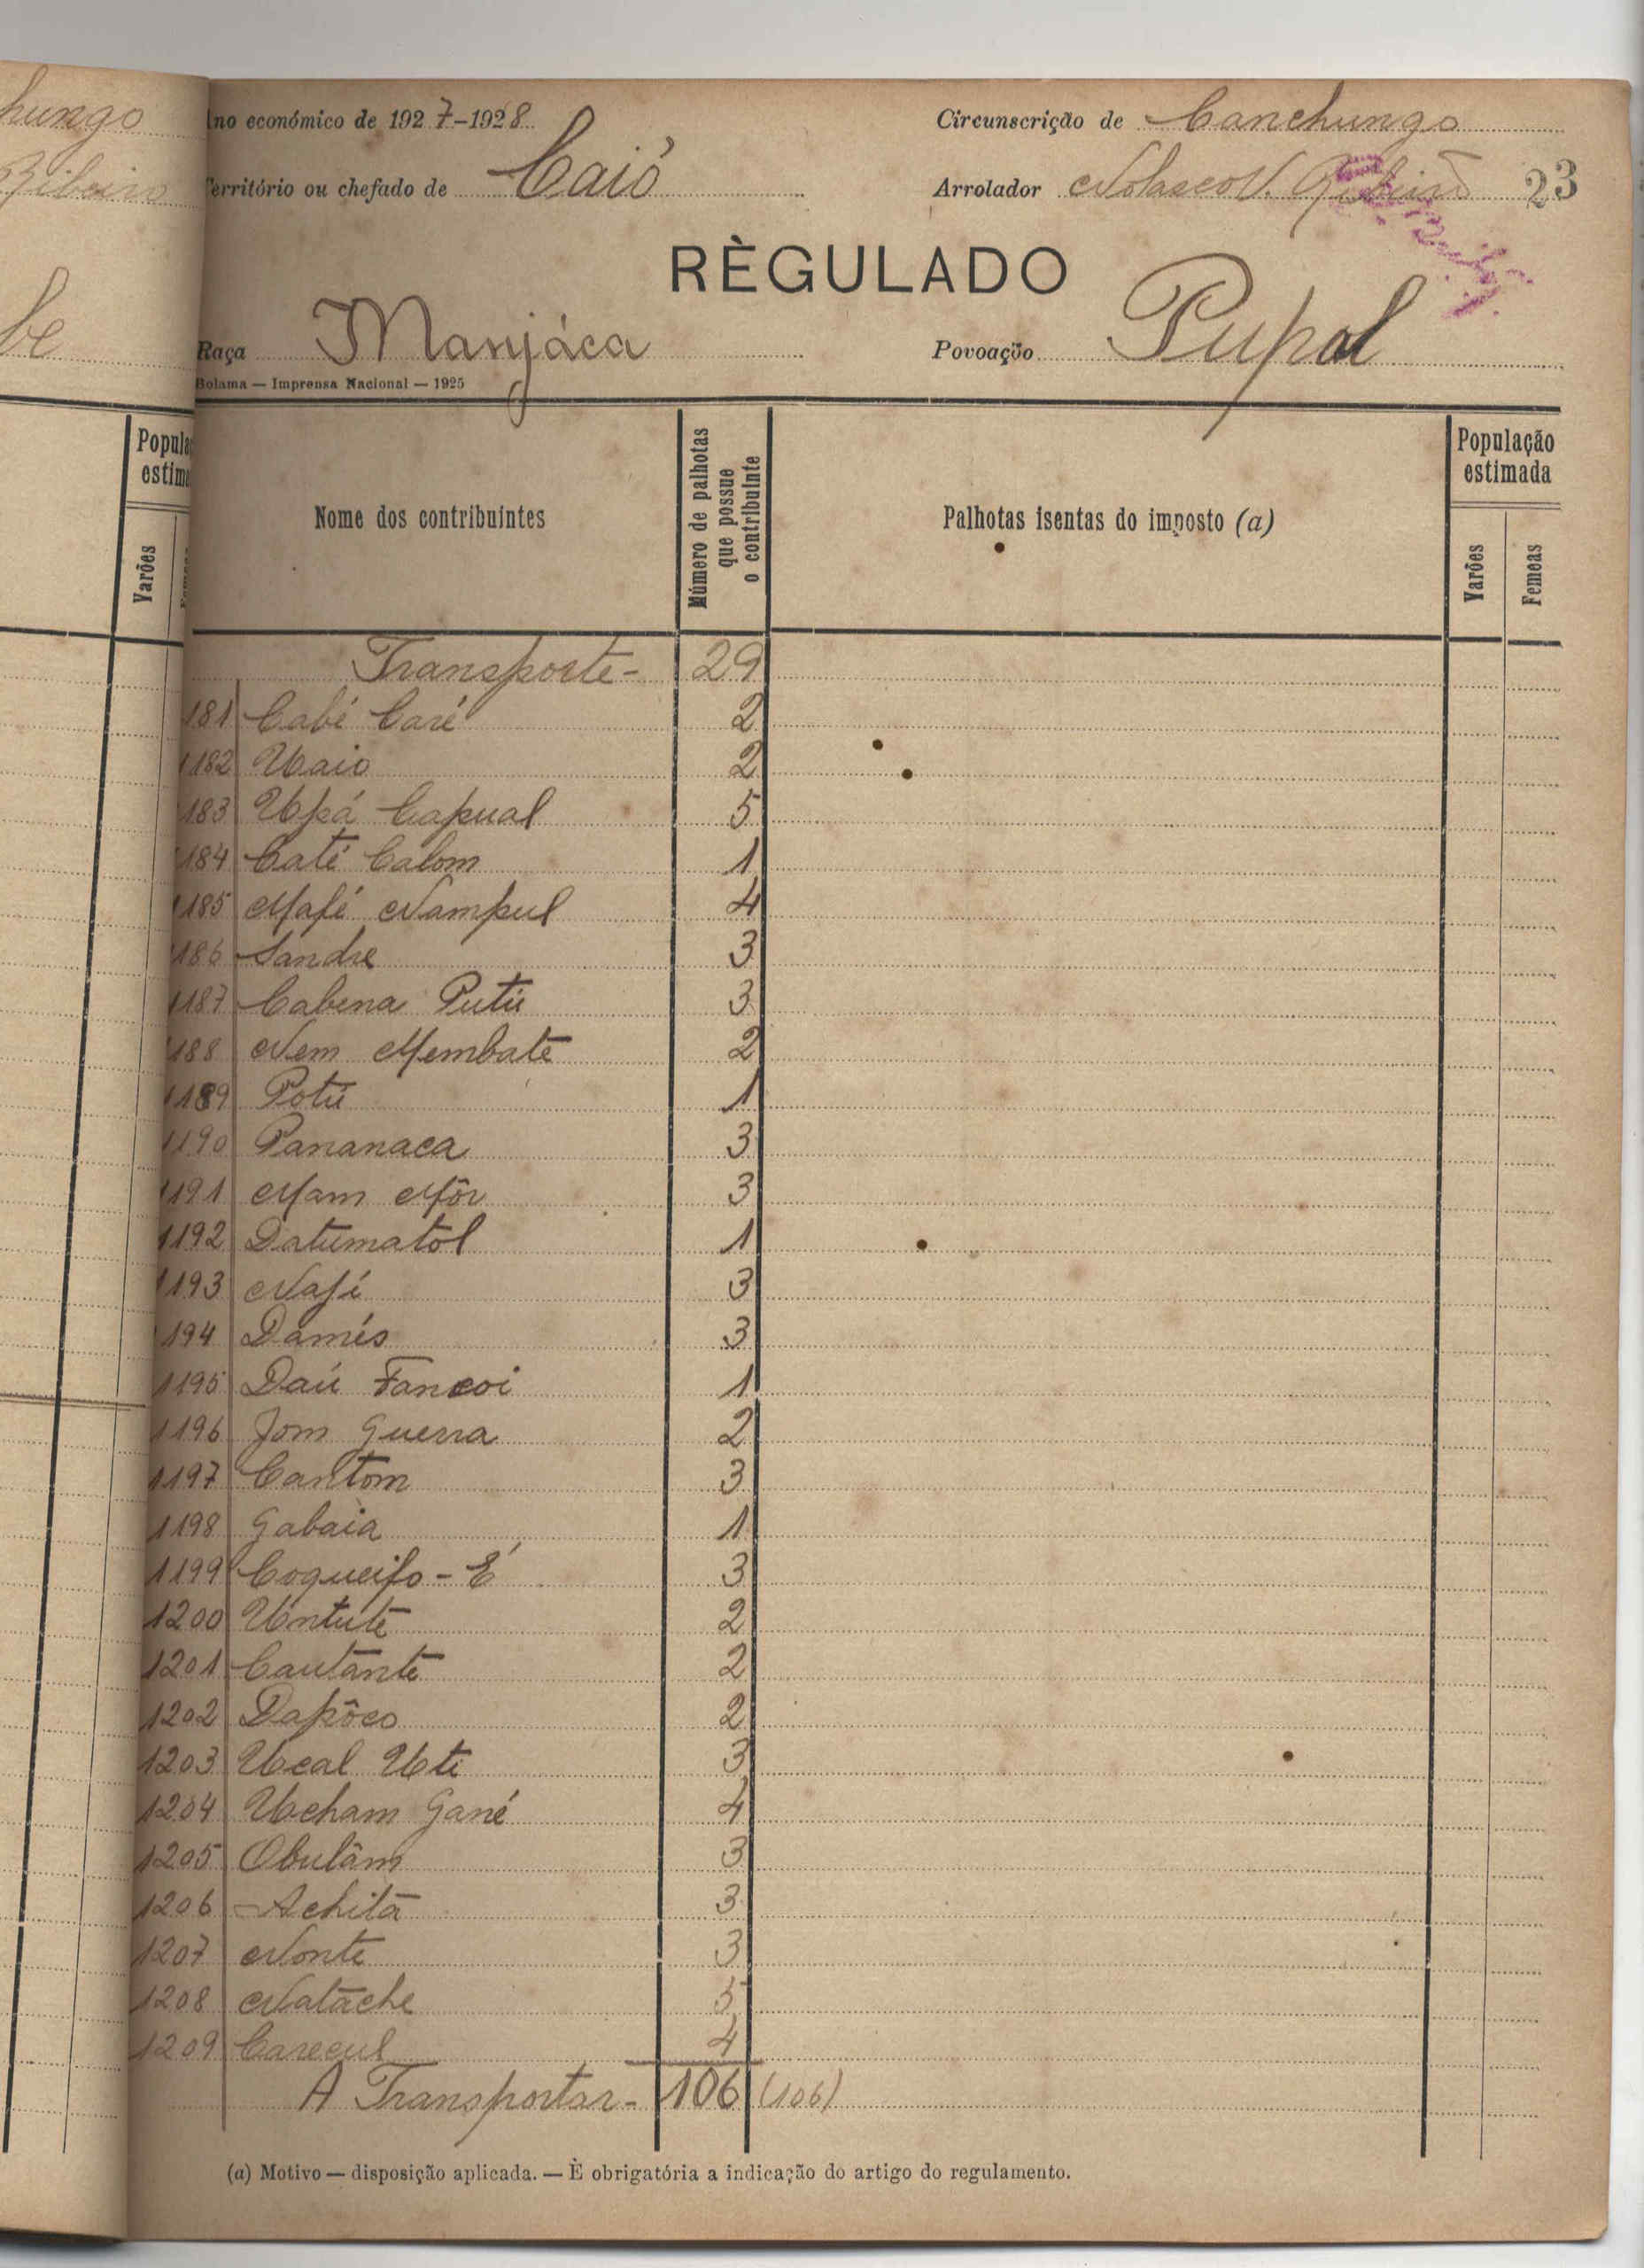 hungo
Ribeiro
be
Popula
estim
Varões
Ano económico de 1927-1928
Circunscrição de Canchungo
Território ou chefado de Caió
Arrolador Nolasco V. Ribeiro 23
RÈGULADO
Raça Manjáca
Povoação Pupal
Bolama — Imprensa Nacional — 1925
Nome dos contribuintes
Número de palhotas
que possue
o contribuinte
Palhotas isentas do imposto (a)
População
estimada
Varões
Femeas
Transporte - 29
1181 Cabi Caré 2
1182 Uaio 2
1183 Upá Capual 5
1184 Caté Calom 1
1185 Mafé Nampul 4
1186 Sandre 3
1187 Cabena Putú 3
1188 Nem Membate 2
1189 Potú 1
1190 Pananaca 3
1191 Mam Môr 3
1192 Datumatol 1
1193 Nafé 3
1194 Damés 3
1195 Daú Fancoi 1
1196 Jom Guerra 2
1197 Cantom 3
1198 Gabaia 1
1199 Coqueifo - É 3
1200 Untute 2
1201 Cautante 2
1202 Dapôco 2
1203 Ucal Uti 3
1204 Ucham Gané 4
1205 Obulâm 3
1206 Achita 3
1207 Nonte 3
1208 Natache 5
1209 Carecul 4
A Transportar - 106 (106)
(a) Motivo — disposição aplicada. — È obrigatória a indicação do artigo do regulamento.